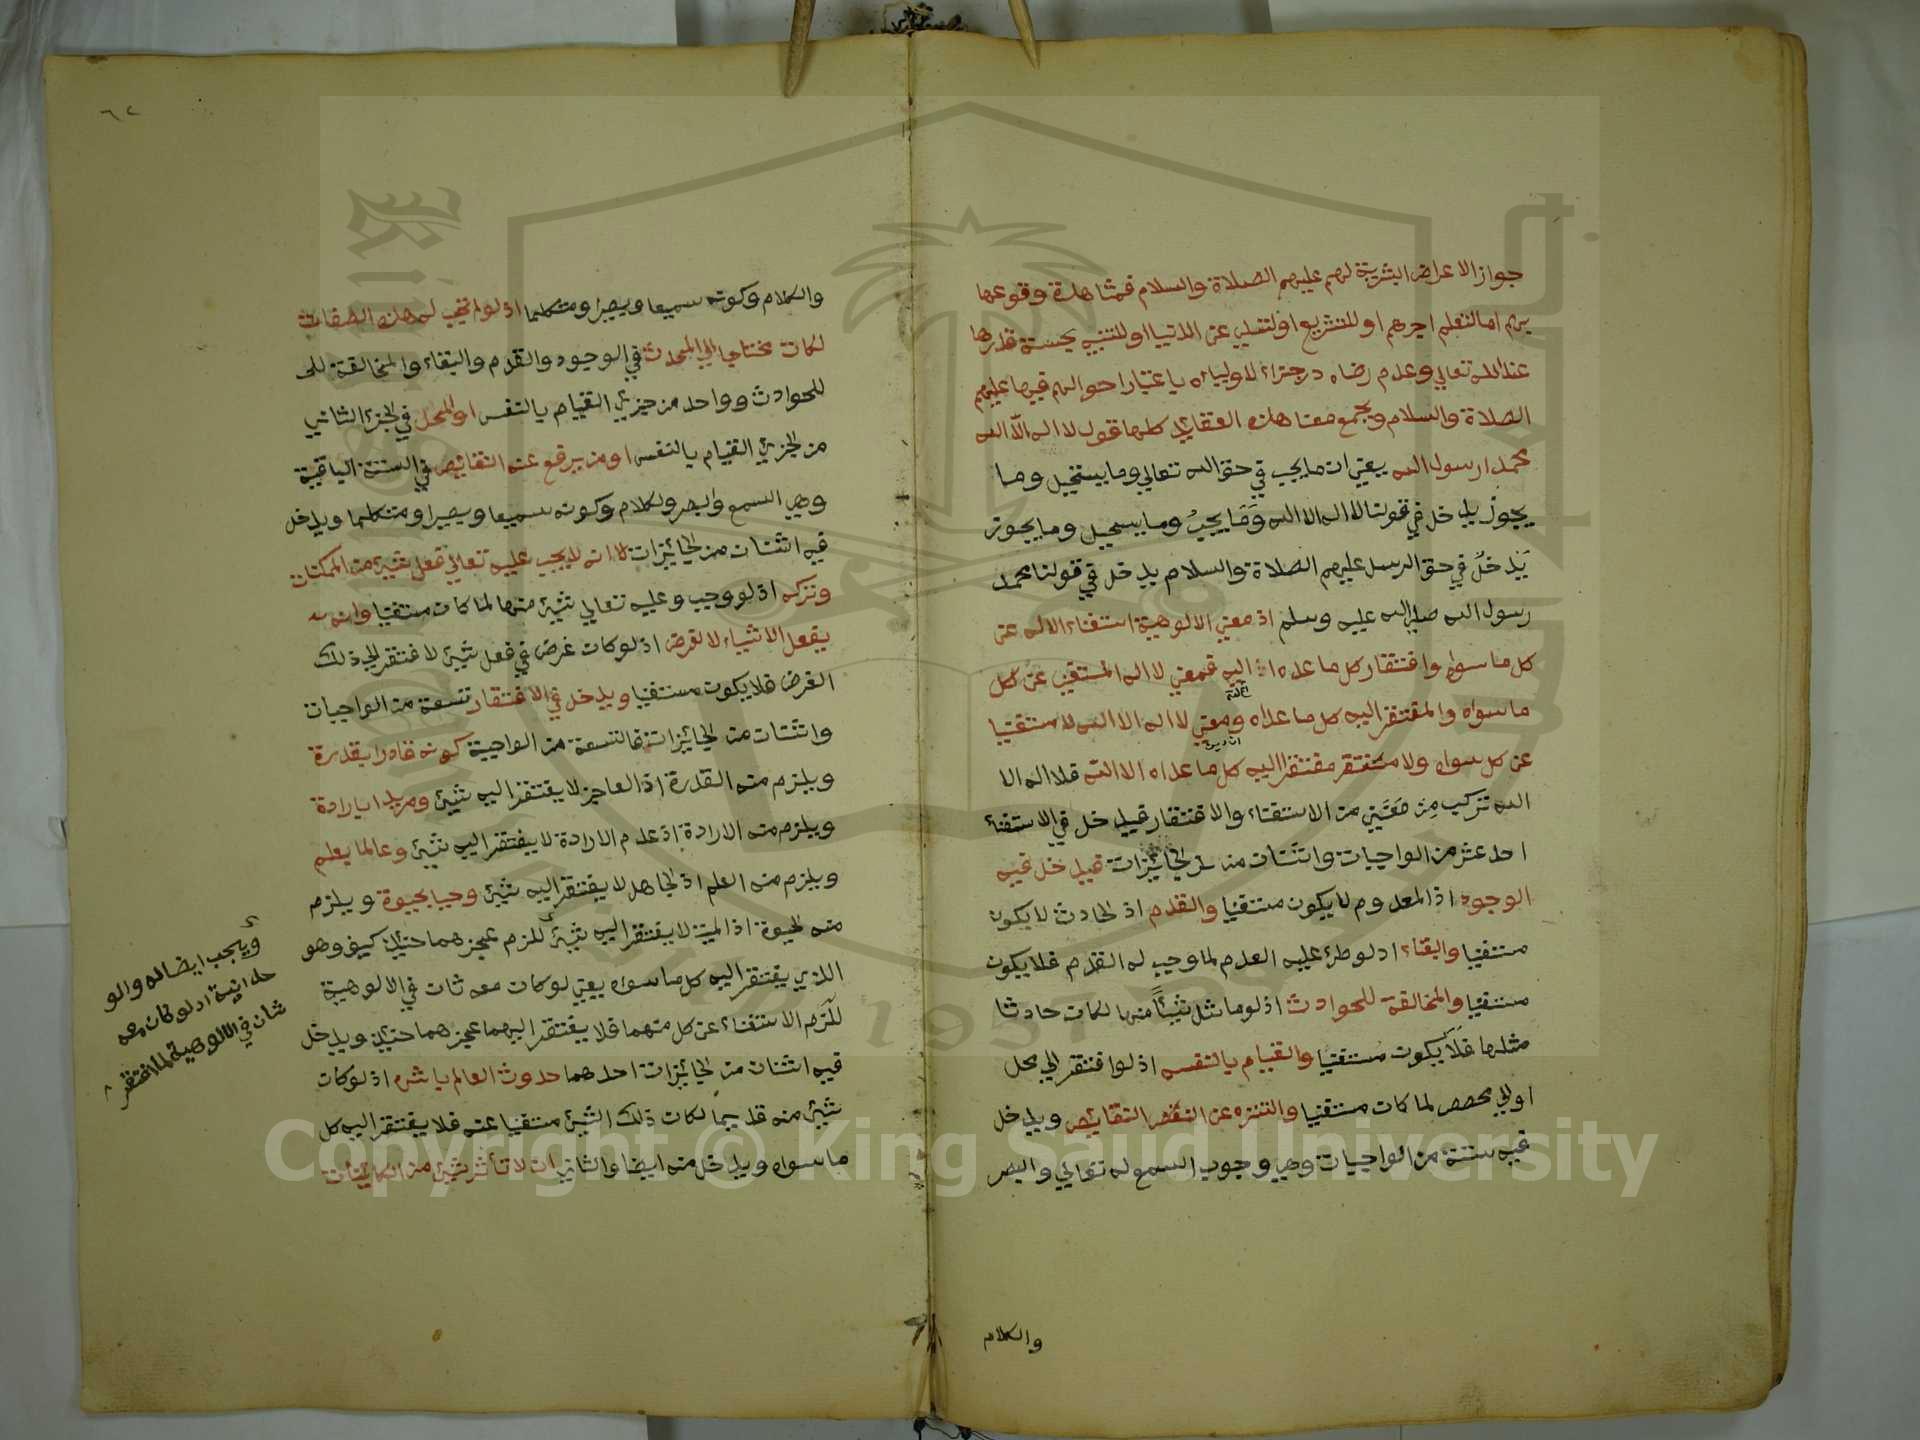 جواز الاعراض البشرية لهم عليهم الصلاة والسلام فمشاهدة وقوعها
بهم اما لتعظيم اجرهم او للتشريع او لتسلي عن الدنيا او للتنبيه لخسة قدرها
عند الله تعالي وعدم رضاه دار جزاء لاوليائه باعتبار احوالهم فيها عليهم
الصلاة والسلام ويجمع معنا هذه العقايد كلها قول لا اله الا الله
محمدا رسول الله يعني ان ما يجب في حق الله تعالي وما يستحيل وما
يجوز يدخل في قولنا لا اله الا الله وما يجب وما يستحيل وما يجوز
يدخل في حق الرسل عليهم الصلاة والسلام يدخل في قولنا محمد
رسول الله صلي الله عليه وسلم اذ معني الالوهية استغناء الاله عن
كل ما سواه وافتقار كل ما عداه اليه فمعني لا اله المستغني عن كل
ما سواه والمفتقر اليه كل ما عداه ومعني لا اله الا الله لا مستغنيا
عن كل سواه ولا مفتقرا اليه كل ما عداه الا الله فلا اله الا
الله تركيب من معنيين من الاستغناء والافتقار فيدخل في الاستغناء
احد عشر من الواجبات واثنان من الجائزات فيدخل فيه
الوجود اذ المعدوم لا يكون مستغنيا والقدم اذ الحادث لا يكون
مستغنيا والبقاء اذ لو طرئ عليه العدم لما وجب له القدم فلا يكون
مستغنيا والمخالفة للحوادث اذ لو ماثل شيئاً منها لكان حادثا
مثلها فلا يكون مستغنيا والقيام بالنفس اذ لو افتقر الي محل
او الي مخصص لما كان مستغنيا والتنزه عن النقائص ويدخل
فيه ستة من الواجبات وهي وجوب السمع له تعالي والبصر
والكلام
٦٢
والكلام وكونه سميعا وبصيرا ومتكلما اذ لو لم تجب له هذه الصفات
لكان محتاجا الي المحدث في الوجود والقدم والبقاء والمخالفة
للحوادث وواحد من جزئي القيام بالنفس او المحل في الجزء الثاني
من الجزئي القيام بالنفس او من يرفع عنه النقائص في الستة الباقية
وهي السمع والبصر والكلام وكونه سميعا وبصيرا ومتكلما ويدخل
فيه اثنان من الجائزات لا انه لا يجب عليه تعالي فعل شيئ من الممكنات
وتركه اذ لو وجب عليه تعالي شيئ منها لما كان مستغنيا وانه
يفعل الاشياء لا لغرض اذ لو كان غرض في فعل شيئ لافتقر الي ذلك
الغرض فلا يكون مستغنيا ويدخل في الافتقار تسعة من الواجبات
واثنان من الجائزات فالتسعة من الواجبة كونه قادرا بقدرة
ويلزم منه القدرة اذ العاجز لا يفتقر اليه شيئ ومريدا بارادة
ويلزم منه الارادة اذ عدم الارادة لا يفتقر اليه شيئ وعالما بعلم
ويلزم منه العلم اذ الجاهل لا يفتقر اليه شيئ وحيا بحيوة ويلزم
منه الحيوة اذ الميت لا يفتقر اليه شيئ للزم عجزهما حنيئذ كيف وهو
الذي يفتقر اليه كل ما سواه يعني لو كان معه ثان في الالوهية
للزم الاستغناء عن كل منهما فلا يفتقر اليهما عجزهما حنيئذ ويدخل
فيه اثنان من الجائزات احدهما حدوث العالم باسره اذ لو كان
شيئ منه قديماً لكان ذلك الشيئ مستغنيا عنه فلا يفتقر اليه كل
ما سواه ويدخل منه ايضا والثاني ان لا تأثر شيئ من الكائنات
ويجب ايضا له والو
حدانية اذ لو كان معه
ثان في الالوهية لما افتقر
Copyright © King Saud University
1957